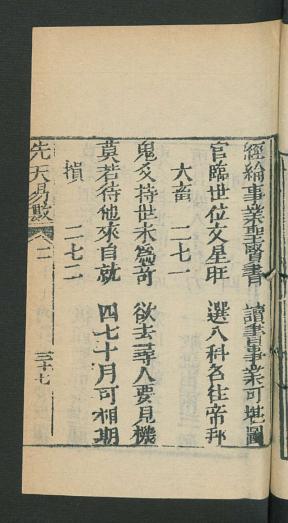 經綸事業聖賢書 讀書事業可堪圖
官臨世位文星旺 選入科名往帝邦
大畜 二七一
鬼爻持世未爲奇 欲去尋人要見機
莫若待他來自就 四七十月可相期
損 二七二
先天易數 卷二 三十七